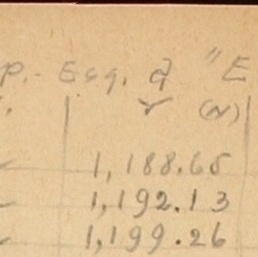 P. - Esq. "E
(N)
1,188.65
1,192.13
1,199.26